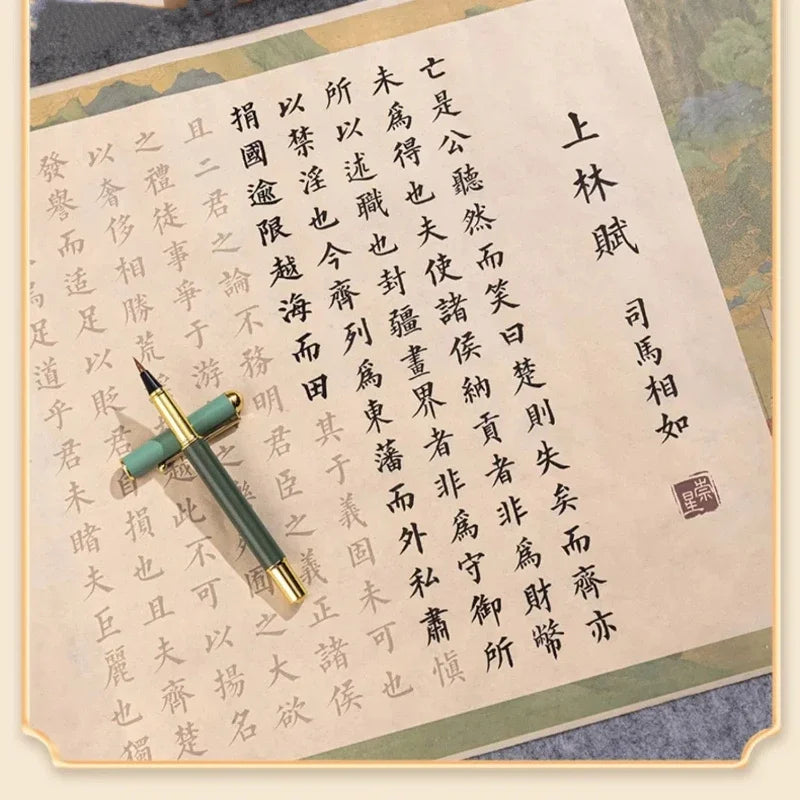 上林賦
司馬相如
亡是公聽然而笑曰楚則失矣而齊亦
未爲得也夫使諸侯納貢者非爲財幣
所以述職也封疆畫界者非爲守御所
以禁淫也今齊列爲東藩而外私肅慎
捐國逾限越海而田其于義固未可也
且二君之論不務明君臣之義正諸侯
之禮徒事爭于游之囿之大欲
以奢侈相勝荒越此不可以揚名
發譽而適足以貶君自損也且夫齊楚
足道乎君未睹夫巨麗也獨